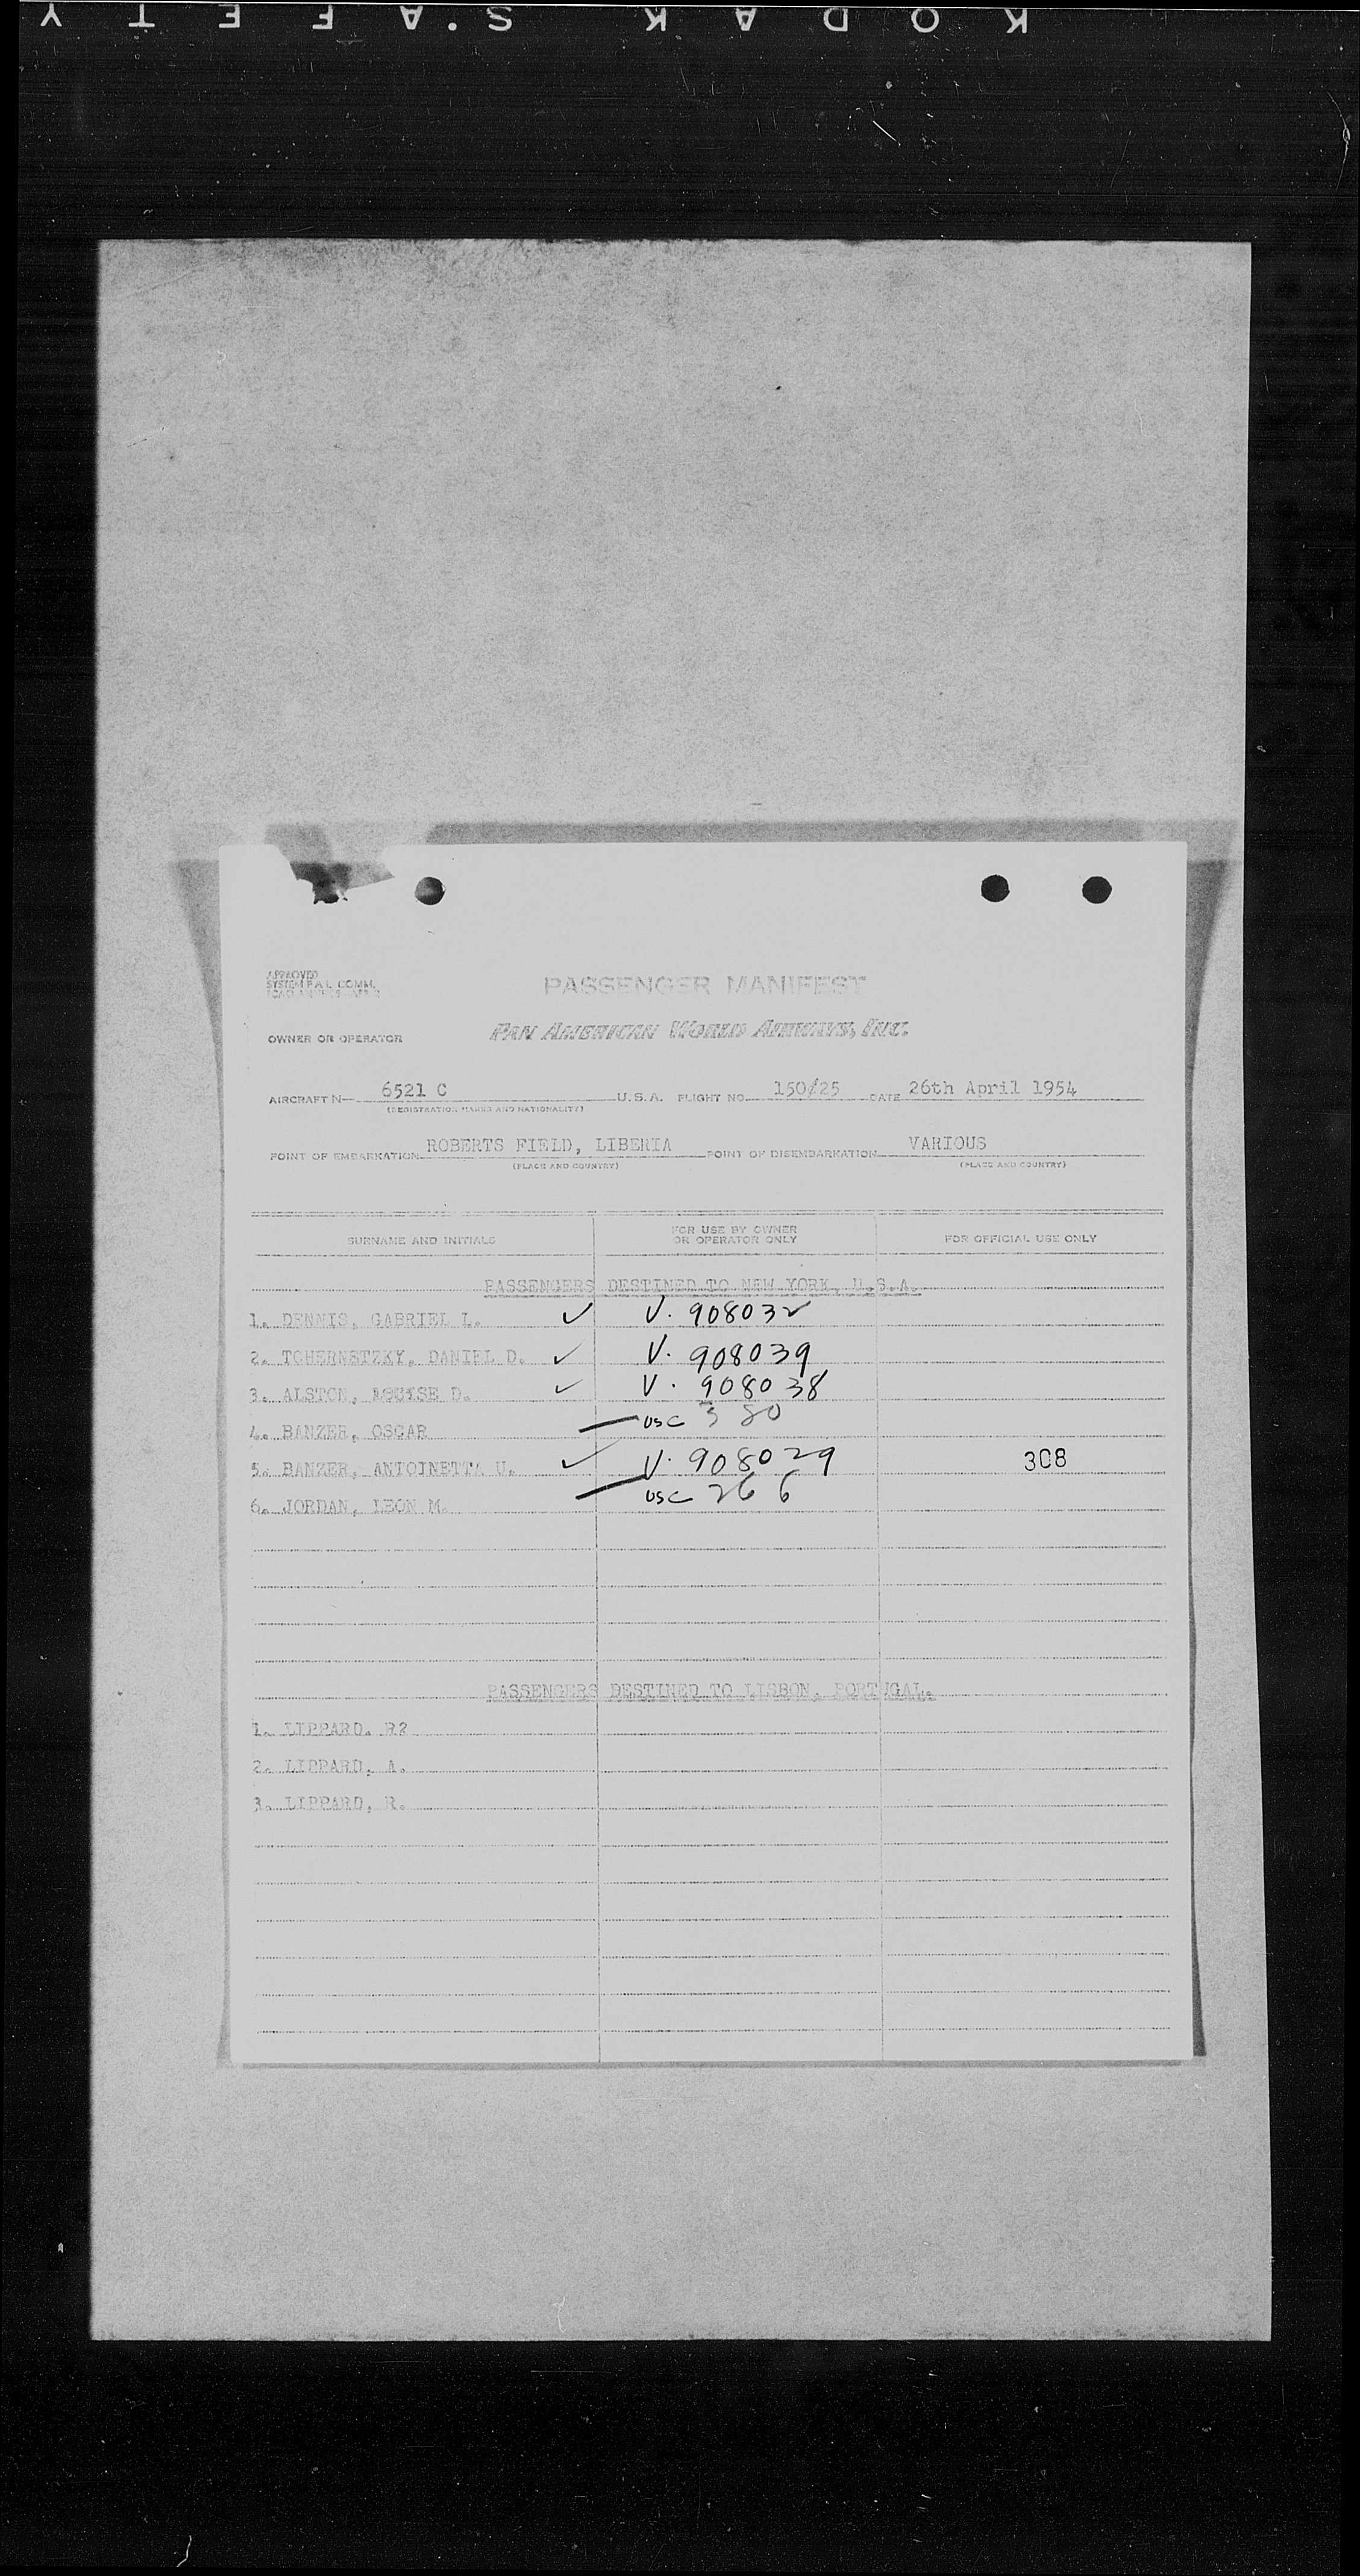 KODAK SAFETY
APPROVED
SYSTEM F.A.L. COMM.
PASSENGER MANIFEST
OWNER OR OPERATOR PAN AMERICAN WORLD AIRWAYS, INC.
AIRCRAFT N— 6521 C U.S.A. FLIGHT NO. 150/25 DATE 26th April 1954
(REGISTRATION MARKS AND NATIONALITY)
POINT OF EMBARKATION ROBERTS FIELD, LIBERIA POINT OF DISEMBARKATION VARIOUS
(PLACE AND COUNTRY) (PLACE AND COUNTRY)
SURNAME AND INITIALS FOR USE BY OWNER OR OPERATOR ONLY FOR OFFICIAL USE ONLY
PASSENGERS DESTINED TO NEW YORK, U.S.A.
1. DENNIS, GABRIEL L. ✓ V. 908032
2. TCHERNETZKY, DANIEL D. ✓ V. 908039
3. ALSTON, LOUISE D. ✓ V. 908038
4. BANZER, OSCAR — USC 380
5. BANZER, ANTOINETTA U. ✓ V. 908029 308
6. JORDAN, LEON M. — USC 266
PASSENGERS DESTINED TO LISBON, PORTUGAL.
1. LIPPARD. R?
2. LIPPARD, A.
3. LIPPARD, R.